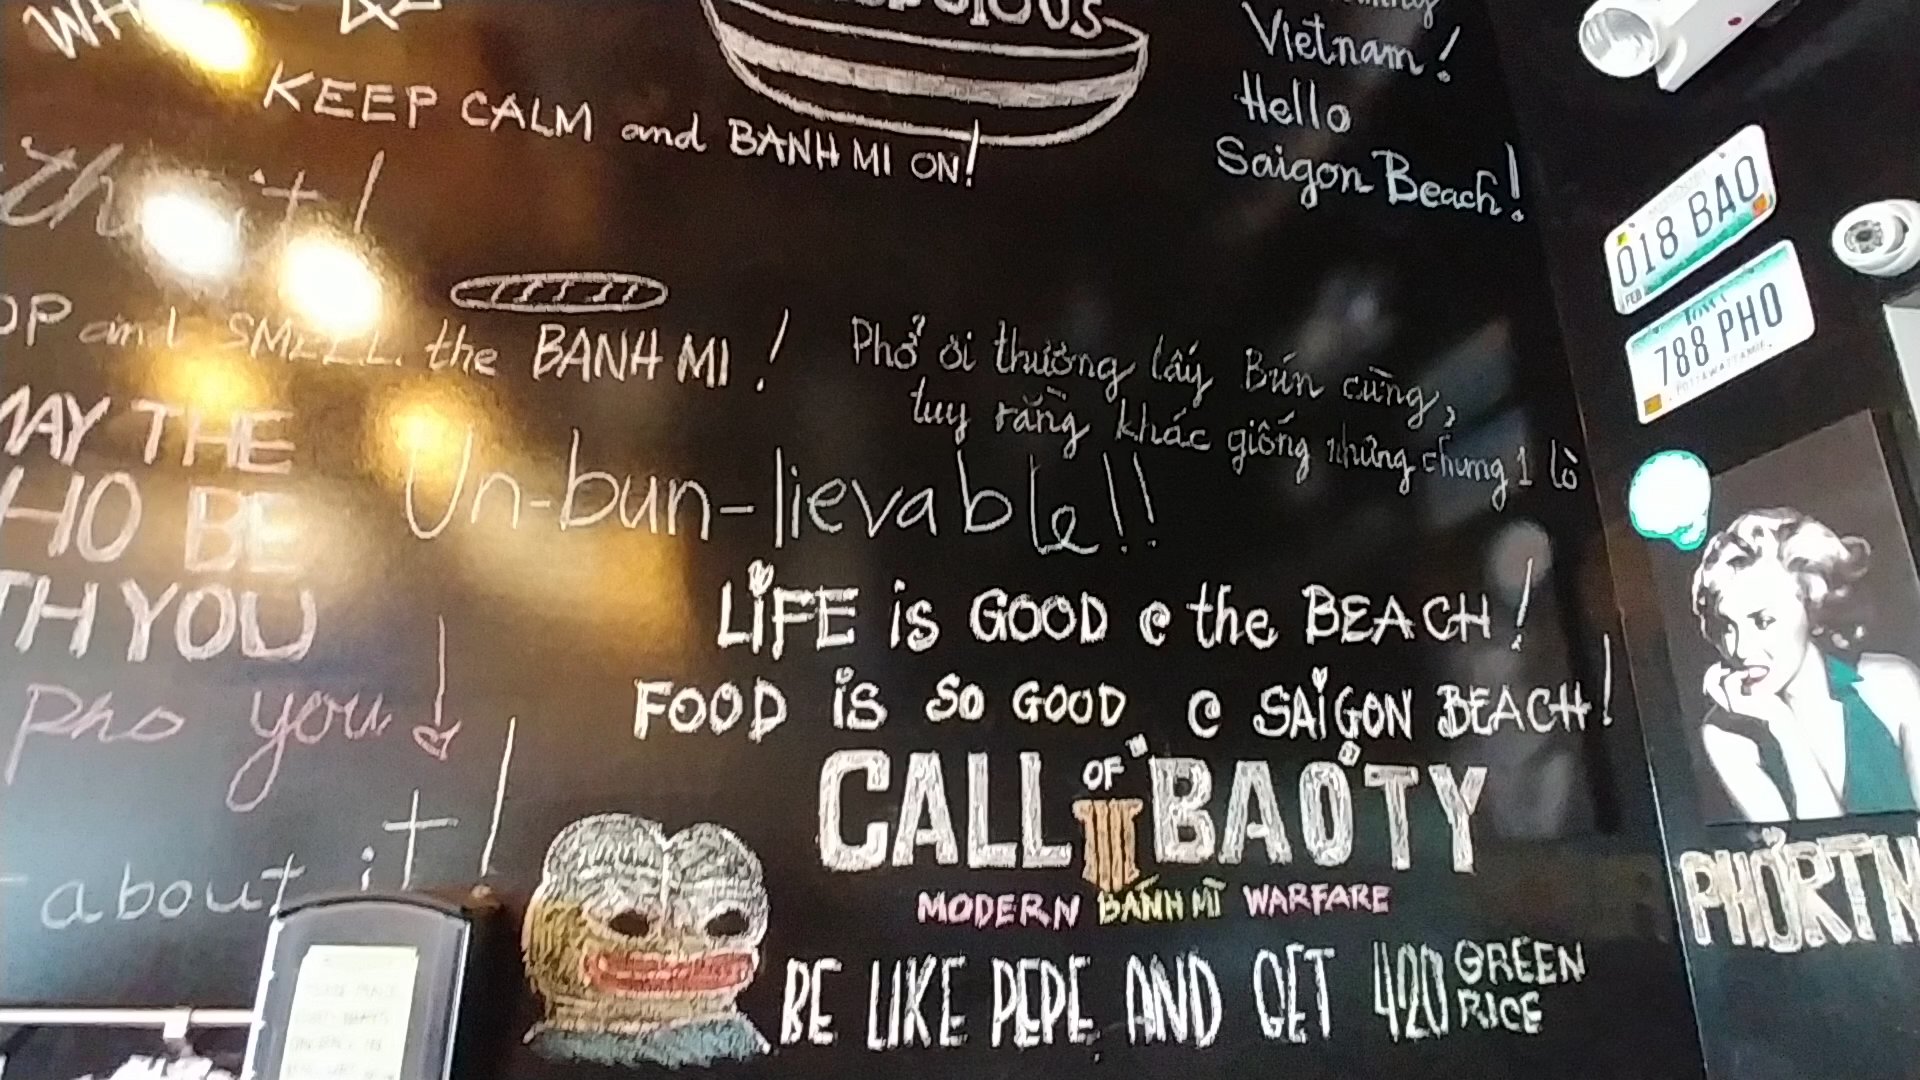 KEEP CALM and BANH MI ON!
Vietnam!
Hello
Saigon Beach!
018 BAO
FEB
788 PHO
POTTAWATTAMIE
and SMELL the BANH MI!
Phở ơi thương lấy Bún cùng,
tuy rằng khác giống nhưng chung 1 lò
MAY THE
HO BE
TH YOU
Un-bun-lievable!!
pho you!
LiFE is GOOD @ the BEACH!
FOOD iS SO GOOD @ SAiGON BEACH!
about it!
CALL OF IIII BAOTY
MODERN BÁNH MÌ WARFARE
BE LIKE PEPE AND GET 420 GREEN RICE
PHỞRTN